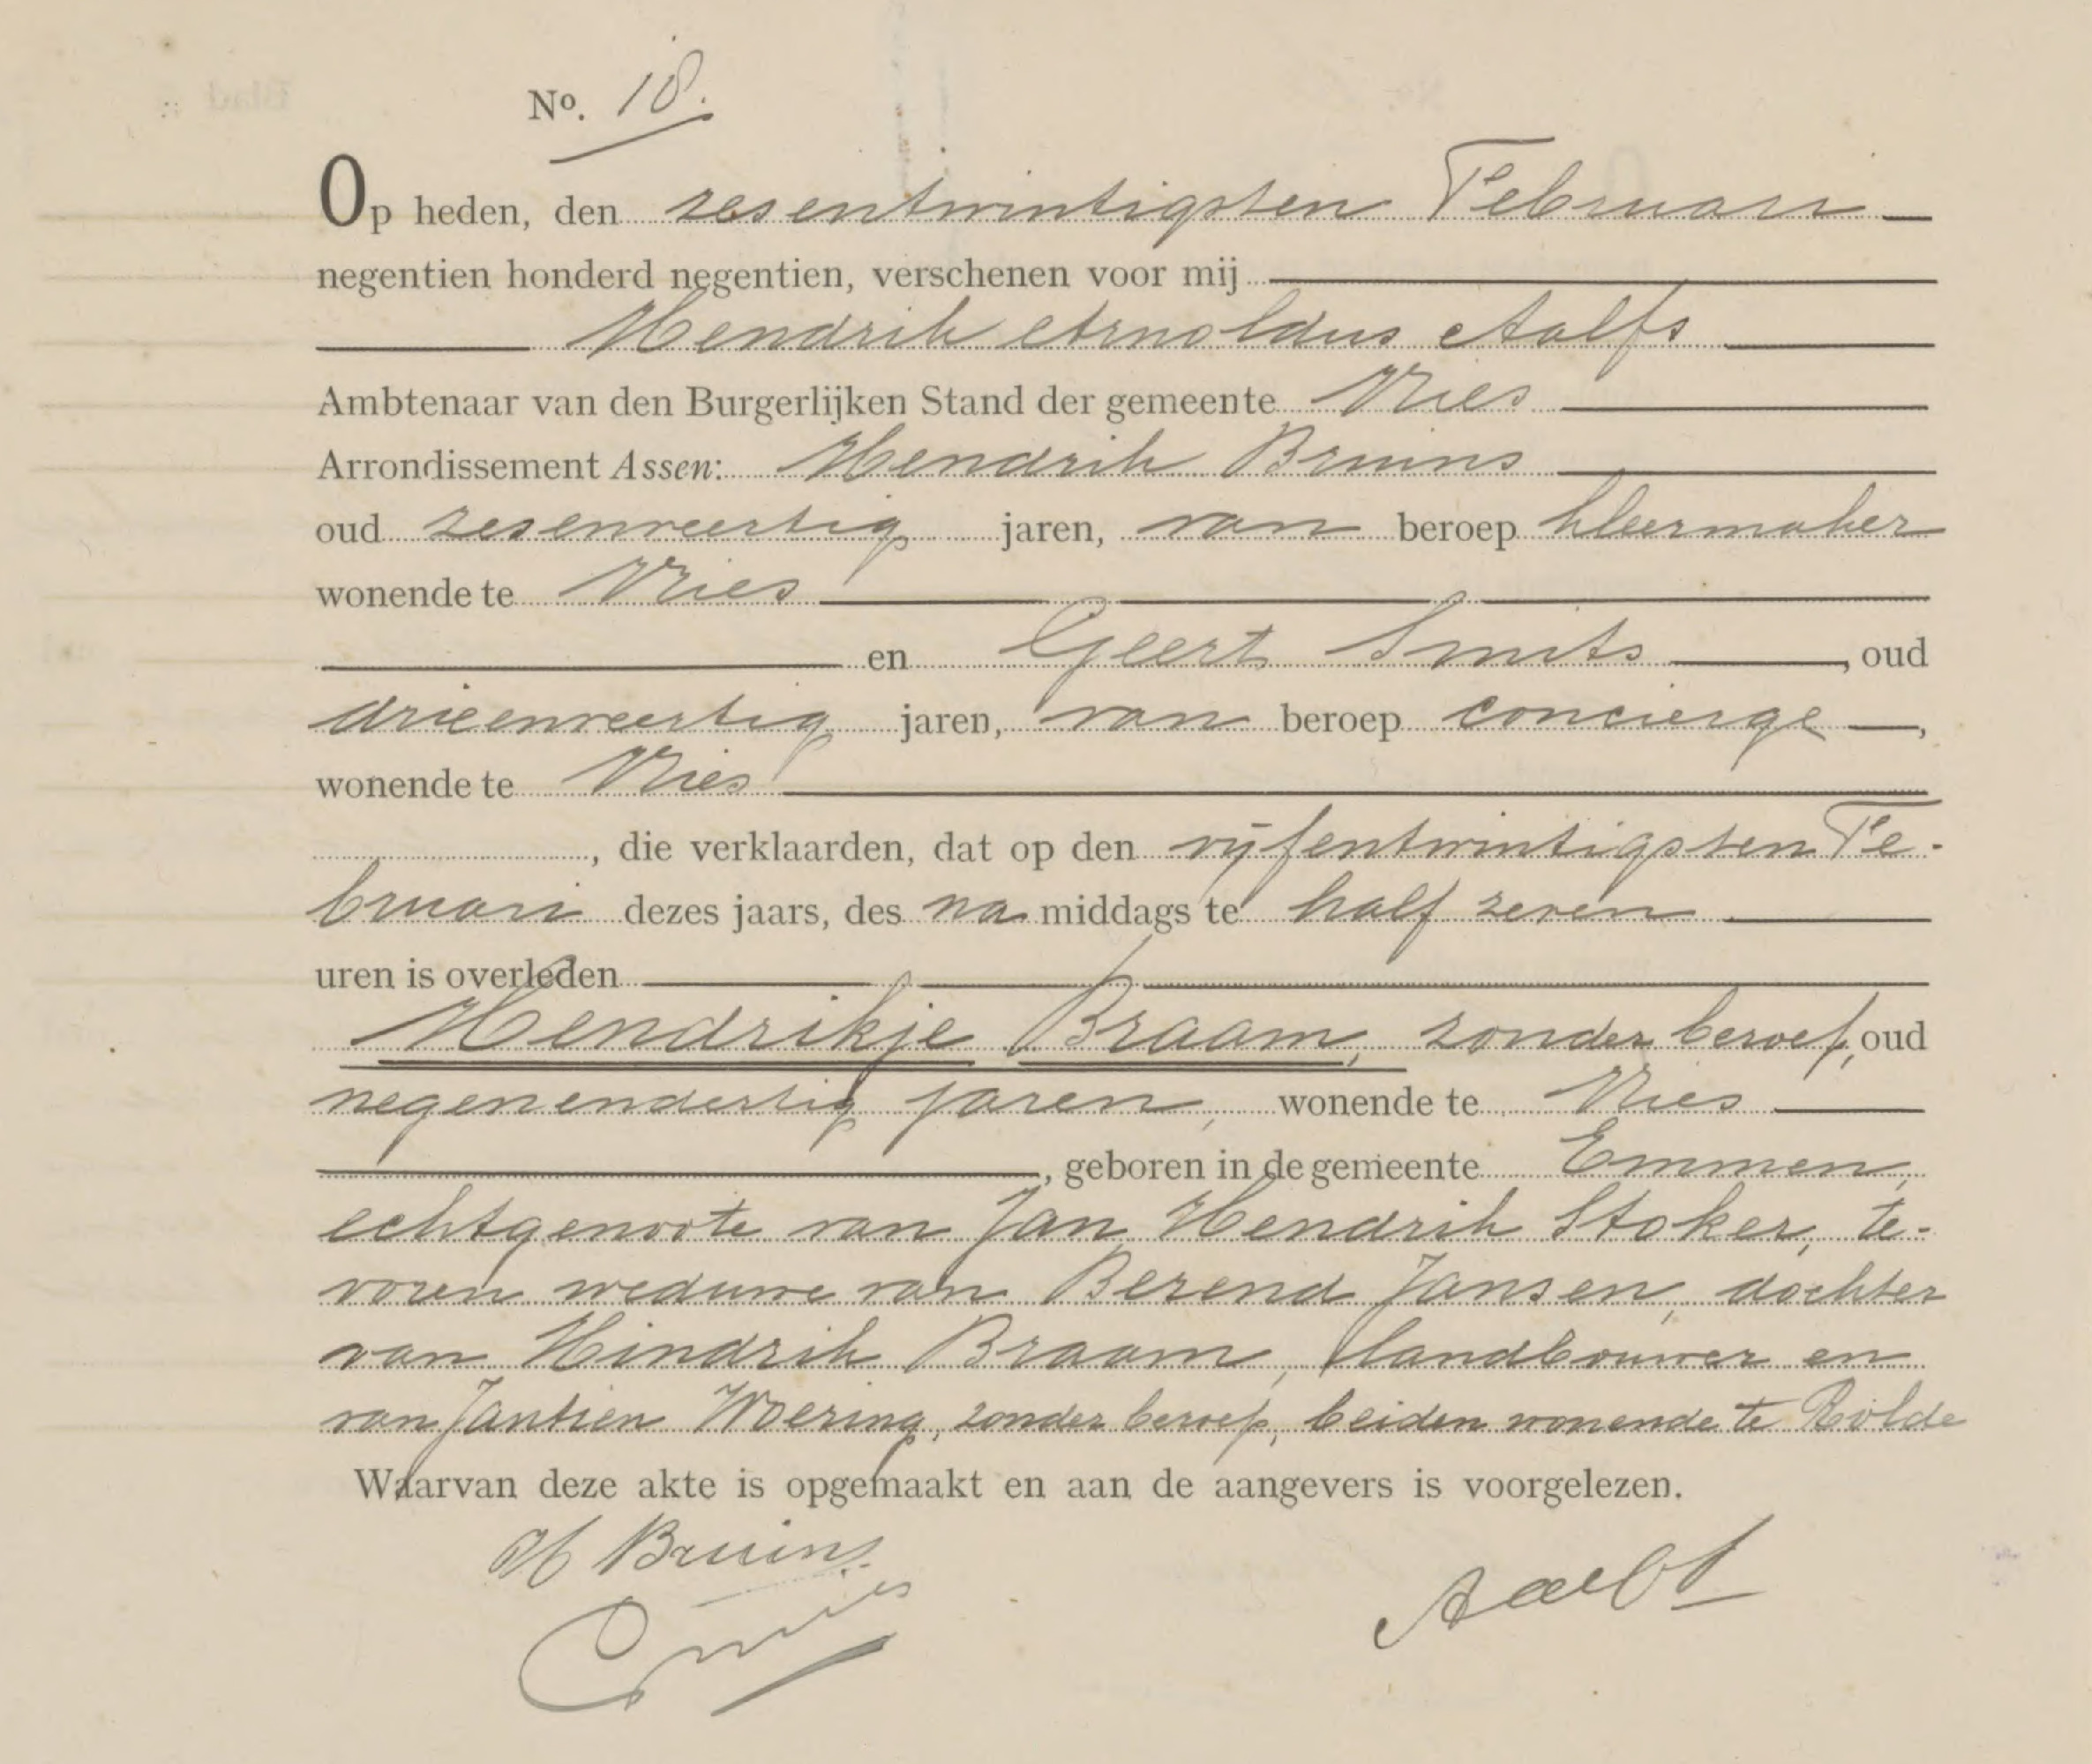 No. 18.
Op heden, den zesentwintigsten Februari
negentien honderd negentien, verschenen voor mij
Hendrik Arnoldus Aalfs
Ambtenaar van den Burgerlijken Stand der gemeente Vries
Arrondissement Assen: Hendrik Bruins
oud zesenveertig jaren, van beroep kleermaker
wonende te Vries
en Geert Smits, oud
drieenveertig jaren, van beroep concierge,
wonende te Vries
, die verklaarden, dat op den vijfentwintigsten Fe-
bruari dezes jaars, des na middags te half zeven
uren is overleden
Hendrikje Braam, zonder beroep, oud
negenendertig jaren, wonende te Vries
, geboren in de gemeente Emmen,
echtgenoote van Jan Hendrik Stoker, te-
voren weduwe van Berend Jansen, dochter
van Hindrik Braam, landbouwer en
van Jantien Woering, zonder beroep, beiden wonende te Rolde
Waarvan deze akte is opgemaakt en aan de aangevers is voorgelezen.
H Bruins
Aalfs